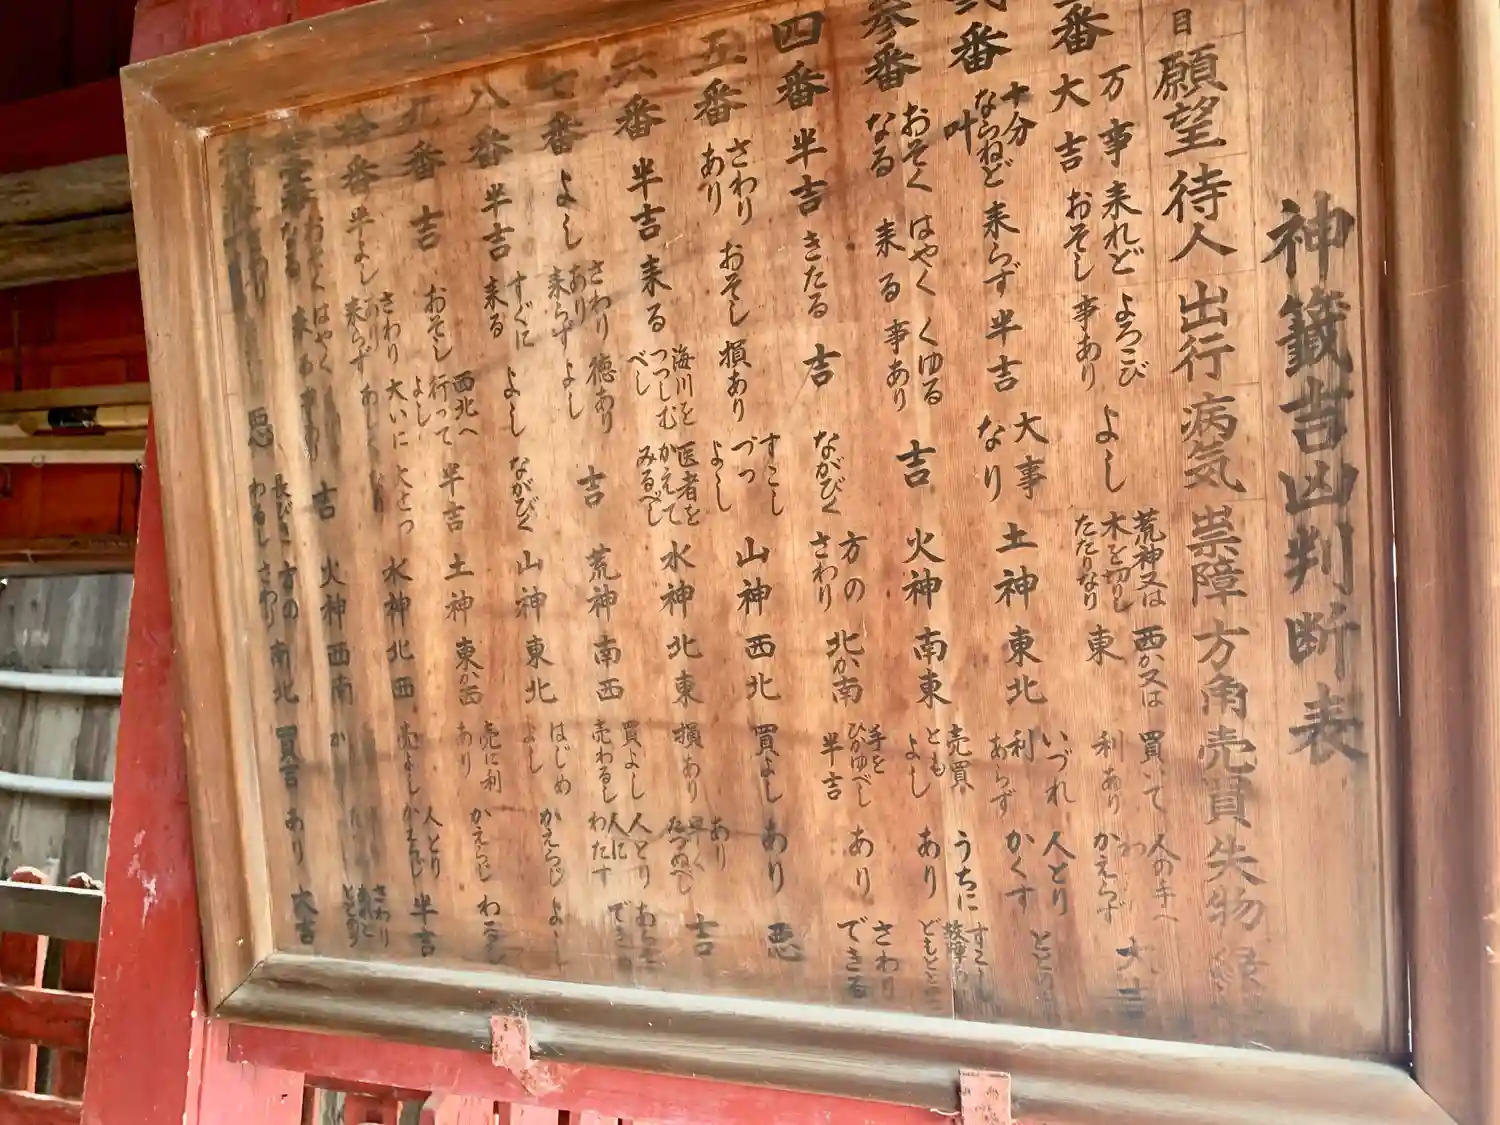 神籤吉凶判断表
目 願望 待人 出行 病気 祟障 方角 売買 失物
番 大吉 万事 おそし 来れど 事あり よろこび よし たたりなり 木を切りし 荒神又は 東 西か又は 利あり 買いて かえらず 人の手へ
弐番 叶 ならねど 十分 来らず 半吉 なり 大事 土神 東北 あらず 利 いづれ かくす 人とり
参番 なる おそく 来る はやく 事あり くゆる 吉 火神 南東 よし とも 売買 あり うちに
四番 半吉 きたる 吉 ながびく さわり 方の 北か南 半吉 ひかゆべし 手を あり できる さわり
五番 あり さわり おそし 損あり よし づつ すこし 山神 西北 買よし あり 悪
六番 半吉 来る べし つつしむ 海川を みるべし かえて 医者を 水神 北東 損あり たづぬべし 早く あり 吉
七番 よし 来らず あり さわり よし 徳あり 吉 荒神 南西 売わるし 買よし わたす 人に 人とり
八番 半吉 来る すぐに よし ながびく 山神 東北 よし はじめ かえらじ よし
九番 吉 おそし よし 行って 西北へ 半吉 土神 東か西 あり 売に利 かえらじ
拾番 半よし 来らず あり さわり 大いに 水神 北西 売よし 人とり 半吉
なる おそく はやく 吉 火神 西南 さわり
悪 わるし 長びき さわり 方の 南北 買吉 あり 大吉